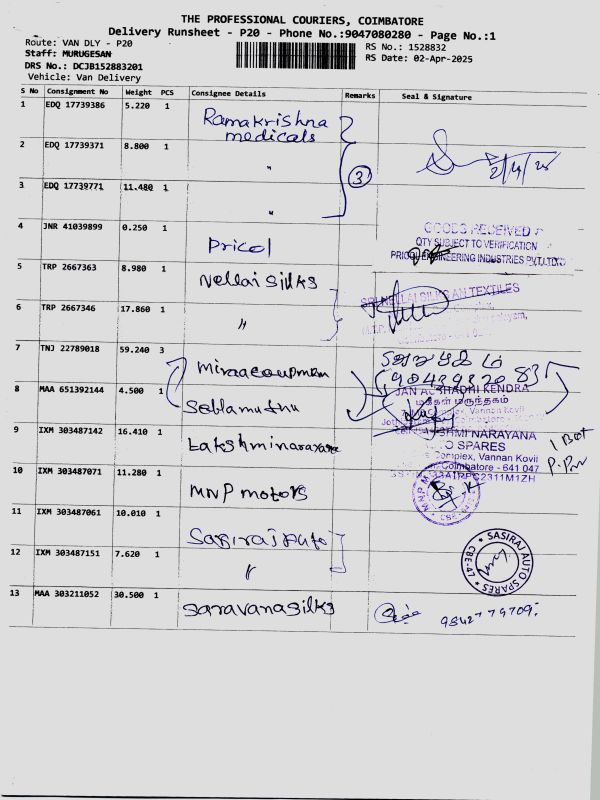 THE PROFESSIONAL COURIERS, COIMBATORE
Delivery Runsheet - P20 - Phone No.:9047080280 - Page No.:1
Route: VAN DLY - P20
RS No.: 1528832
Staff: MURUGESAN
RS Date: 02-Apr-2025
DRS No.: DCJB152883201
Vehicle: Van Delivery
S No Consignment No Weight PCS Consignee Details Remarks Seal & Signature
1 EDQ 17739386 5.220 1 Ramakrishna medicals
2 EDQ 17739371 8.800 1 "
3
2/4/25
3 EDQ 17739771 11.480 1 "
4 JNR 41039899 0.250 1 Pricol
GOODS RECEIVED
QTY SUBJECT TO VERIFICATION
ENGINEERING INDUSTRIES PVT.LTD
5 TRP 2667363 8.980 1 Nellai silks
NELLAI SILKS AN TEXTILES
6 TRP 2667346 17.860 1 "
7 TNJ 22789018 59.240 3
8 MAA 651392144 4.500 1
JAN AUSHADHI KENDRA
மக்கள் மருந்தகம்
Vannan Kovil
9 IXM 303487142 16.410 1 Lakshminarayana
LAKSHMI NARAYANA
AUTO SPARES
Complex, Vannan Kovil
Coimbatore - 641 047
1 Box
10 IXM 303487071 11.280 1 MNP motors
11 IXM 303487061 10.010 1 Sasiraj Auto
12 IXM 303487151 7.620 1 "
SASIRAJ AUTO SPARES
CBE-47
13 MAA 303211052 30.500 1 Saravana silks
9842779709